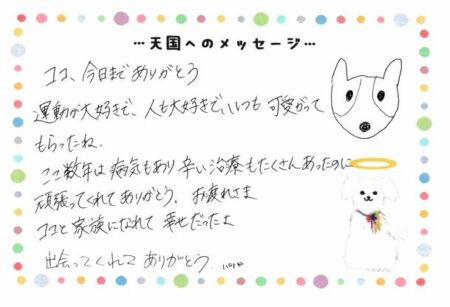 …天国へのメッセージ…
ココ、今日まであリがとう
運動が大好きで、人も大好きで、いつも可愛がって
もらったね。
ここ数年は病気もあり辛い治療もたくさんあったのに
頑張ってくれてありがとう。お疲れさま
ココと家族になれて幸せだったよ
出会ってくれて ありがとう。